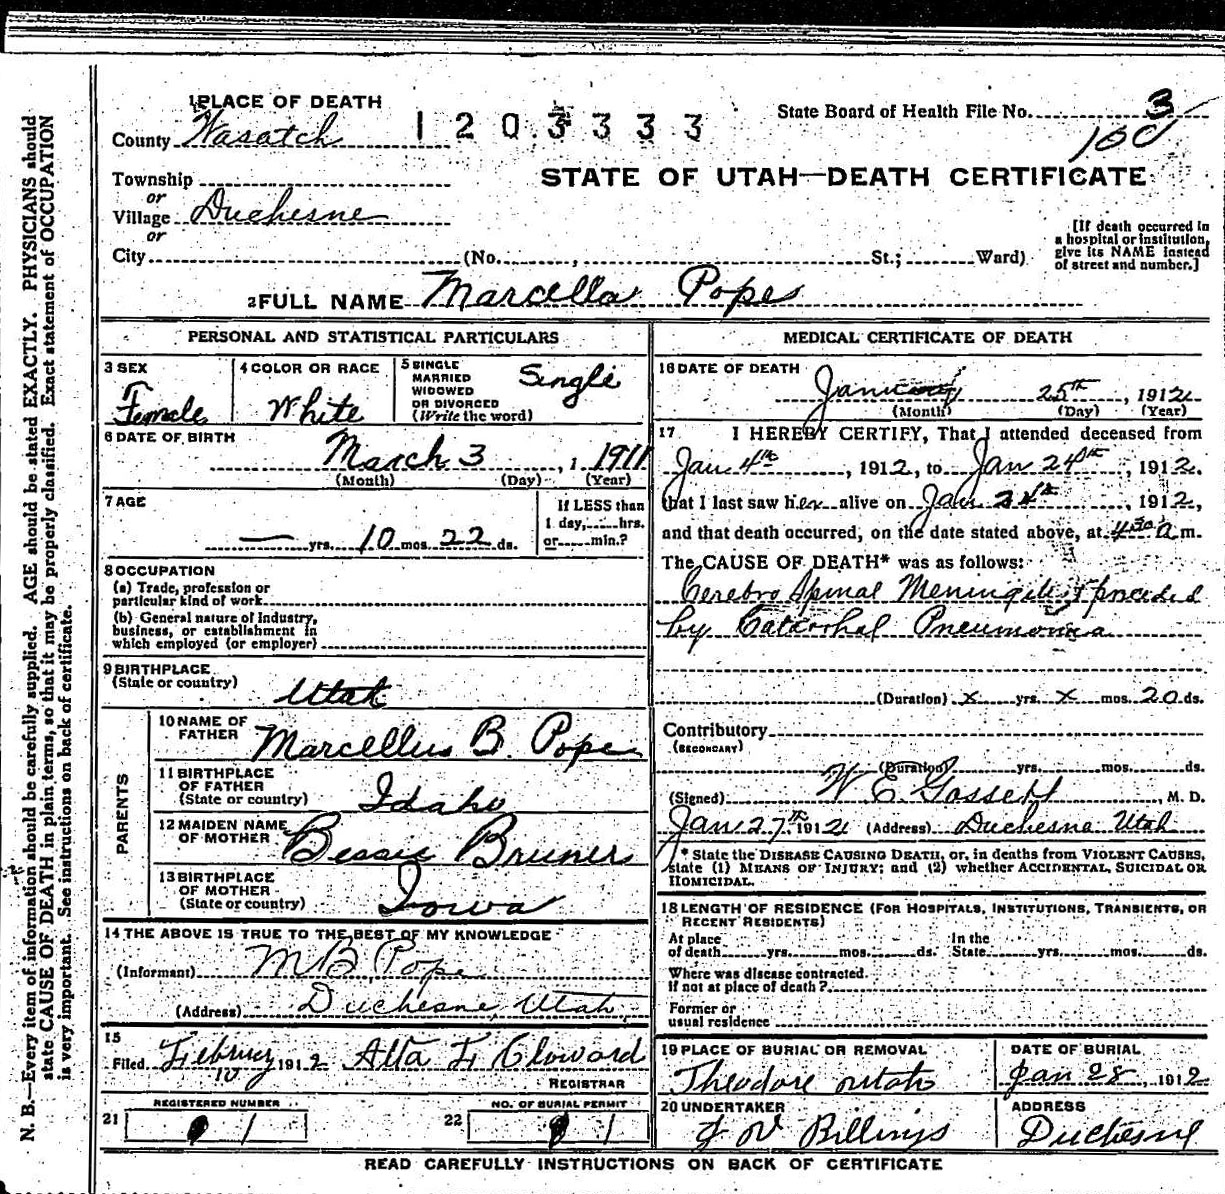 1 PLACE OF DEATH
County Wasatch
1203333
State Board of Health File No. 3
160
Township
or
Village Duchesne
or
City (No. , St.; Ward)
STATE OF UTAH—DEATH CERTIFICATE
[If death occurred in
a hospital or institution,
give its NAME instead
of street and number.]
2 FULL NAME Marcella Pope
PERSONAL AND STATISTICAL PARTICULARS
3 SEX
Female
4 COLOR OR RACE
White
5 SINGLE
MARRIED
WIDOWED
OR DIVORCED
(Write the word)
Single
6 DATE OF BIRTH
March 3, 1 1911
(Month) (Day) (Year)
7 AGE
— yrs. 10 mos. 22 ds.
If LESS than
1 day, hrs.
or min.?
8 OCCUPATION
(a) Trade, profession or
particular kind of work
(b) General nature of Industry,
business, or establishment in
which employed (or employer)
9 BIRTHPLACE
(State or country)
Utah
PARENTS
10 NAME OF
FATHER
Marcellus B. Pope
11 BIRTHPLACE
OF FATHER
(State or country)
Idaho
12 MAIDEN NAME
OF MOTHER
Bessie Bruner
13 BIRTHPLACE
OF MOTHER
(State or country)
Iowa
14 THE ABOVE IS TRUE TO THE BEST OF MY KNOWLEDGE
(Informant) M B Pope
(Address) Duchesne, Utah.
15
Filed February 10 1912 Alta E Cloward
REGISTRAR
REGISTERED NUMBER
21 1
NO. OF BURIAL PERMIT
22 1
MEDICAL CERTIFICATE OF DEATH
16 DATE OF DEATH
January 25th, 1912
(Month) (Day) (Year)
17 I HEREBY CERTIFY, That I attended deceased from
Jan 4th, 1912, to Jan 24th, 1912.
that I last saw her alive on Jan 24th, 1912,
and that death occurred, on the date stated above, at 4:30 a m.
The CAUSE OF DEATH* was as follows:
Cerebro Spinal Meningitis preceded
by Catarrhal Pneumonia
(Duration) x yrs. x mos. 20 ds.
Contributory
(SECONDARY)
(Duration) yrs. mos. ds.
(Signed) W E Gossett, M. D.
Jan 27th 1912 (Address) Duchesne Utah
* State the DISEASE CAUSING DEATH, or, in deaths from VIOLENT CAUSES,
state (1) MEANS OF INJURY; and (2) whether ACCIDENTAL, SUICIDAL OR
HOMICIDAL.
18 LENGTH OF RESIDENCE (FOR HOSPITALS, INSTITUTIONS, TRANSIENTS, OR
RECENT RESIDENTS)
At place
of death yrs. mos. ds.
In the
State yrs. mos. ds.
Where was disease contracted.
If not at place of death?
Former or
usual residence
19 PLACE OF BURIAL OR REMOVAL
Theodore Utah
DATE OF BURIAL
Jan 28, 1912
20 UNDERTAKER
Billings
ADDRESS
Duchesne
READ CAREFULLY INSTRUCTIONS ON BACK OF CERTIFICATE
N. B.—Every item of information should be carefully supplied. AGE should be stated EXACTLY. PHYSICIANS should
state CAUSE OF DEATH in plain terms, so that it may be properly classified. Exact statement of OCCUPATION
is very important. See instructions on back of certificate.